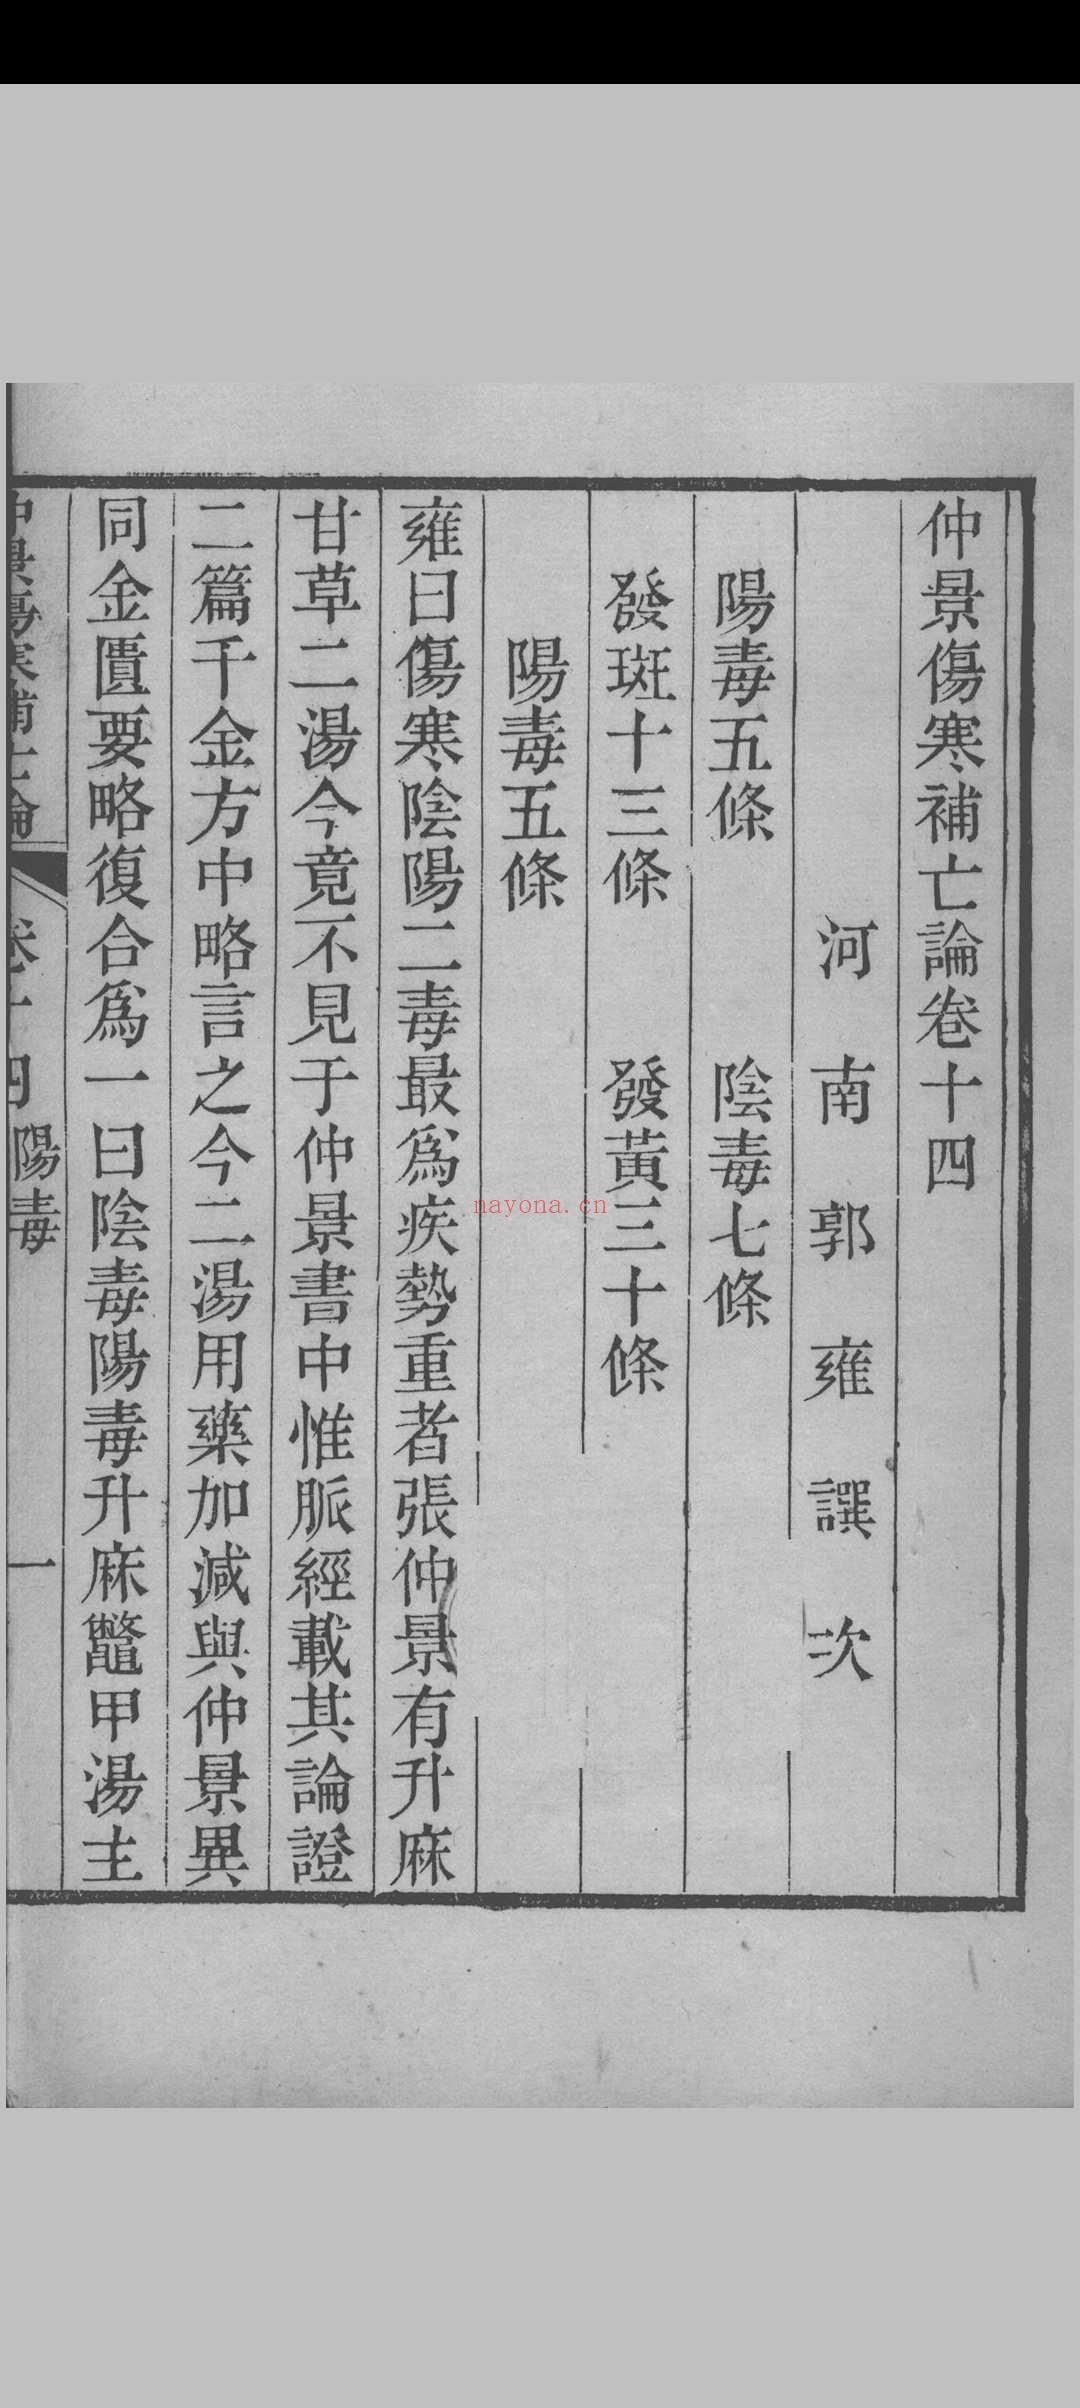 仲景傷寒補亡論卷十四
河南郭雍譔次
陽毒五條 陰毒七條
發斑十三條 發黃三十條
陽毒五條
雍曰傷寒陰陽二毒最爲疾勢重者張仲景有升麻
甘草二湯今竟不見于仲景書中惟脈經載其論證
二篇千金方中略言之今二湯用藥加減與仲景異
同金匱要略復合爲一曰陰毒陽毒升麻鼈甲湯主
仲景傷寒補亡論 卷十四 陽毒 一
nayona.cn